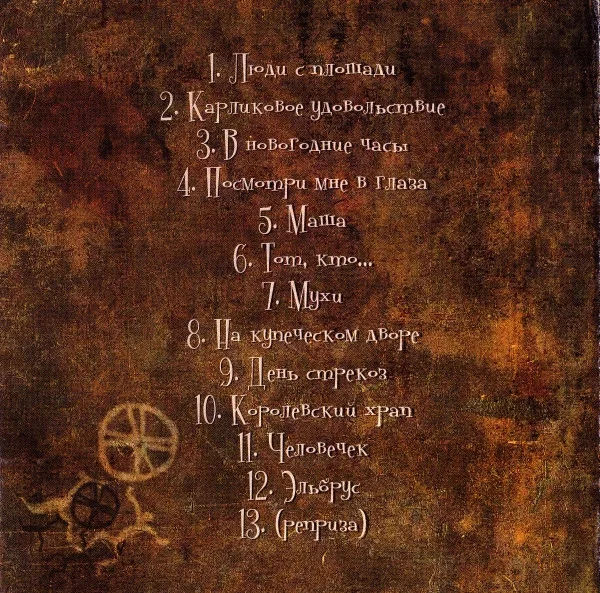 1. Люди с площади
2. Карликовое удовольствие
3. В новогодние часы
4. Посмотри мне в глаза
5. Маша
6. Тот, кто...
7. Мухи
8. На купеческом дворе
9. День стрекоз
10. Королевский храп
11. Человечек
12. Эльбрус
13. (реприза)